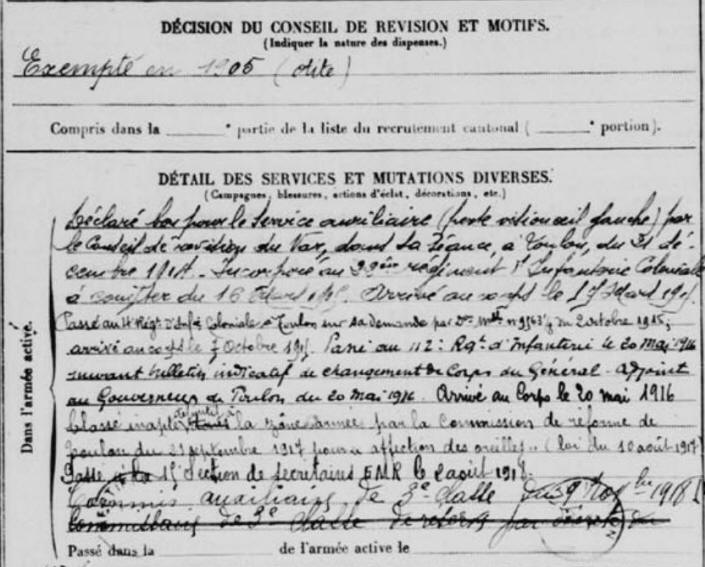 DÉCISION DU CONSEIL DE REVISION ET MOTIFS.
(Indiquer la nature des dispenses.)
Exempté en 1905 (otite)
Compris dans la ______ᵉ partie de la liste du recrutement cantonal (______ᵉ portion).
DÉTAIL DES SERVICES ET MUTATIONS DIVERSES.
(Campagnes, blessures, actions d'éclat, décorations, etc.)
Déclaré bon pour le service auxiliaire (perte vision œil gauche) par
le Conseil de révision du Var, dans sa séance, à Toulon, du 21 dé-
cembre 1914. Incorporé au régiment d'Infanterie Coloniale
à compter du 16 Mars 1915. Arrivé au corps le 17 Mars 1915.
Passé au 4e Régt d'Infie Coloniale à Toulon sur sa demande par Don Mlle n° du 2 octobre 1915;
arrivé au corps le 7 Octobre 1915. Passé au 112e Rgt d'Infanterie le 20 mai 1916
suivant bulletin indicatif de changement de Corps du Général - adjoint
au Gouverneur de Toulon du 20 mai 1916. Arrivé au Corps le 20 mai 1916
Classé inapte la zône armée par la Commission de réforme de
Toulon du 21 septembre 1917 pour affection des oreilles. (loi du 10 août 1917)
Passé à la Section de secrétaires EMR le 2 août 1918.
Commis auxiliaire de 3e classe du 9 Nov bre 1918
Commissaire de 3e classe de réserve par décret du
Passé dans la ______ de l'armée active le ______
Dans l'armée active.